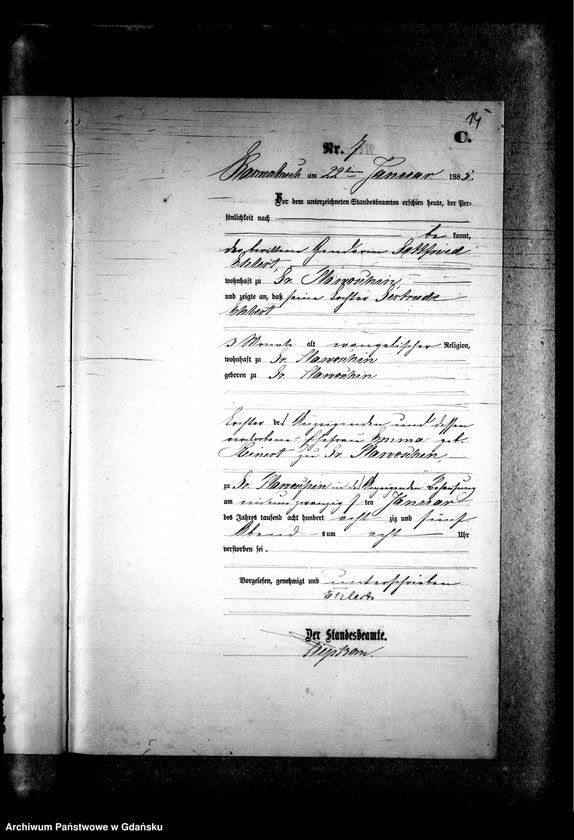 14
C.
Nr. 7
am 22ten Januar 1885.
Vor dem unterzeichneten Standesbeamten erschien heute, der Per-
sönlichkeit nach
be kannt,
der berittene Gendarm Gottfried
Ehlert,
wohnhaft zu Gr.
und zeigte an, daß seine Tochter Gertrude
Ehlert
3 Monate alt evangelischer Religion,
wohnhaft zu Gr.
geboren zu Gr.
Tochter des Anzeigenden und dessen
verstorbene Ehefrau Emma geb.
Reinert zu Gr.
zu Gr. in des Anzeigenden Behausung
am einundzwanzigsten Januar
des Jahres tausend acht hundert acht zig und fünf
Abend s um acht Uhr
verstorben sei.
Vorgelesen, genehmigt und unterschrieben
Ehlert
Der Standesbeamte.
Archiwum Państwowe w Gdańsku